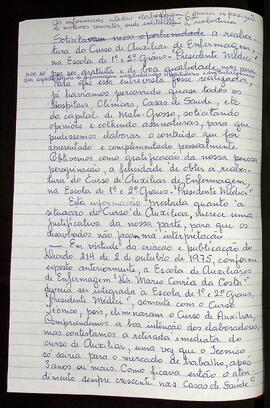 Solicitavam nessa oportunidade a reaber-
tura do Curso de Auxiliar de Enfermagem,
na Escola de 1º e 2º Graus - "Presidente Médici"
por ser gratuita e de boa qualidade, mas
para que esta infra fosse registrada,
já havíamos percorrido quase todos os
Hospitais, Clínicas, Casas de Saúde, etc
da capital de Mato Grosso, solicitando
opiniões e colhendo assinaturas, para que
pudéssemos elaborar o conteúdo que foi
apresentado e complementado pessoalmente.
Obtivemos como gratificação da nossa penosa
peregrinação, a felicidade de obter a reaber-
tura do Curso de Auxiliar de Enfermagem,
na Escola de 1º e 2º Graus - "Presidente Médici".
Esta informação prestada quanto "a
situação do Curso de Auxiliar, merece uma
justificativa da nossa parte, para que os
desavisados não façam má interpretação
- Em virtude da criação e publicação do
Decreto 214 de 2 de outubro de 1975, conforme
exposto anteriormente, a Escola de Auxiliares
de Enfermagem "Dr. Mário Corrêa da Costa"
deveria ser integrada à Escola de 1º e 2º Graus,
"Presidente Médici", somente com o Curso
Técnico, pois, eliminaram o Curso de Auxiliar,
Compreendemos a boa intenção dos elaboradores,
mas contestamos a retirada imediata do
curso de Auxiliar, uma vez que o Técnico
só sairia para o mercado de trabalho, após
3 anos ou mais. Como ficava então o aten-
dimento sempre crescente nas Casas de Saúde?